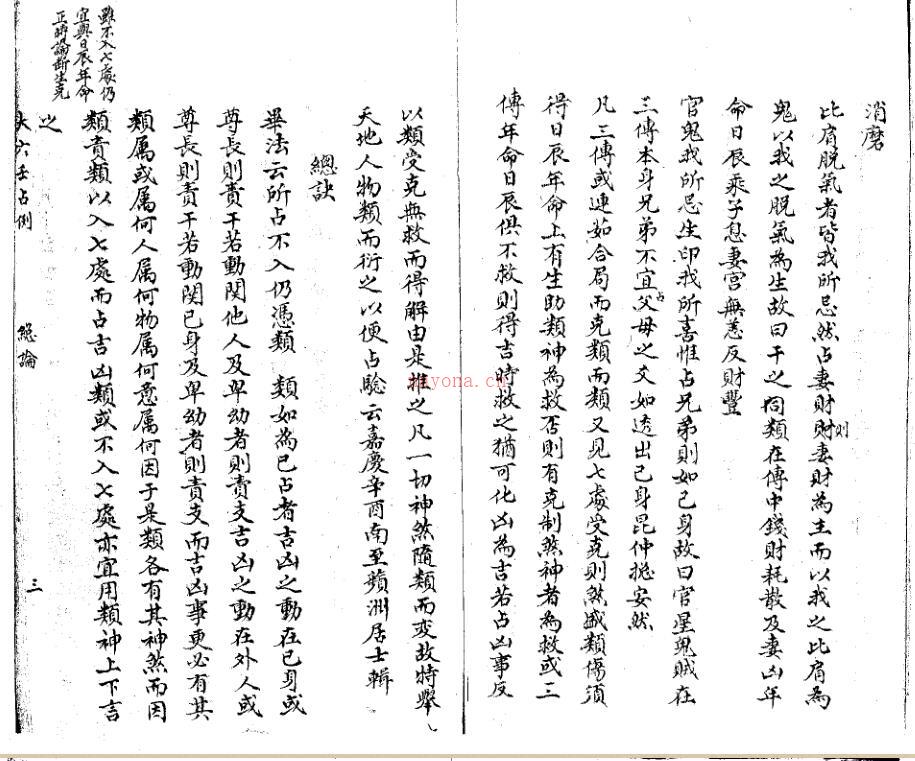 消磨
比肩脫氣者皆我所忌然占妻財財則妻財為主而以我之比肩為
鬼以我之脫氣為生故曰干之同類在傳中錢財耗散及妻凶年
命日辰乘子息妻宮無恙反財豐
官鬼我所忌生印我所喜惟占兄弟則如己身故曰官星鬼賊在
三傳本身兄弟不宜占父母之爻如透出己身昆仲揔安然
凡三傳或連茹合局而克類而類又見七處受克則煞盛類傷須
得日辰年命上有生助類神為救否則有克制煞神者為救或三
傳年命日辰俱不救則得吉時救之猶可化凶為吉若占凶事反
以類受克無救而得解由是推之凡一切神煞隨類而变故特舉
天地人物類而衍之以便占驗云嘉慶辛酉南至蘋洲居士輯
總訣
畢法云所占不入仍憑類 類如為己占者吉凶之動在己身或
尊長則責干若動関他人及卑幼者則責支吉凶之動在外人或
尊長則責干若動関己身及卑幼者則責支而吉凶事更必有其
類属或属何人属何物属何意属何因于是類各有其神煞而因
類責類以入七處而占吉凶類或不入七處亦宜用類神上下言
之
雖不入七處仍
宜與日辰年命
正時論斷生克
大六壬占例
總論
三
mayona.cn